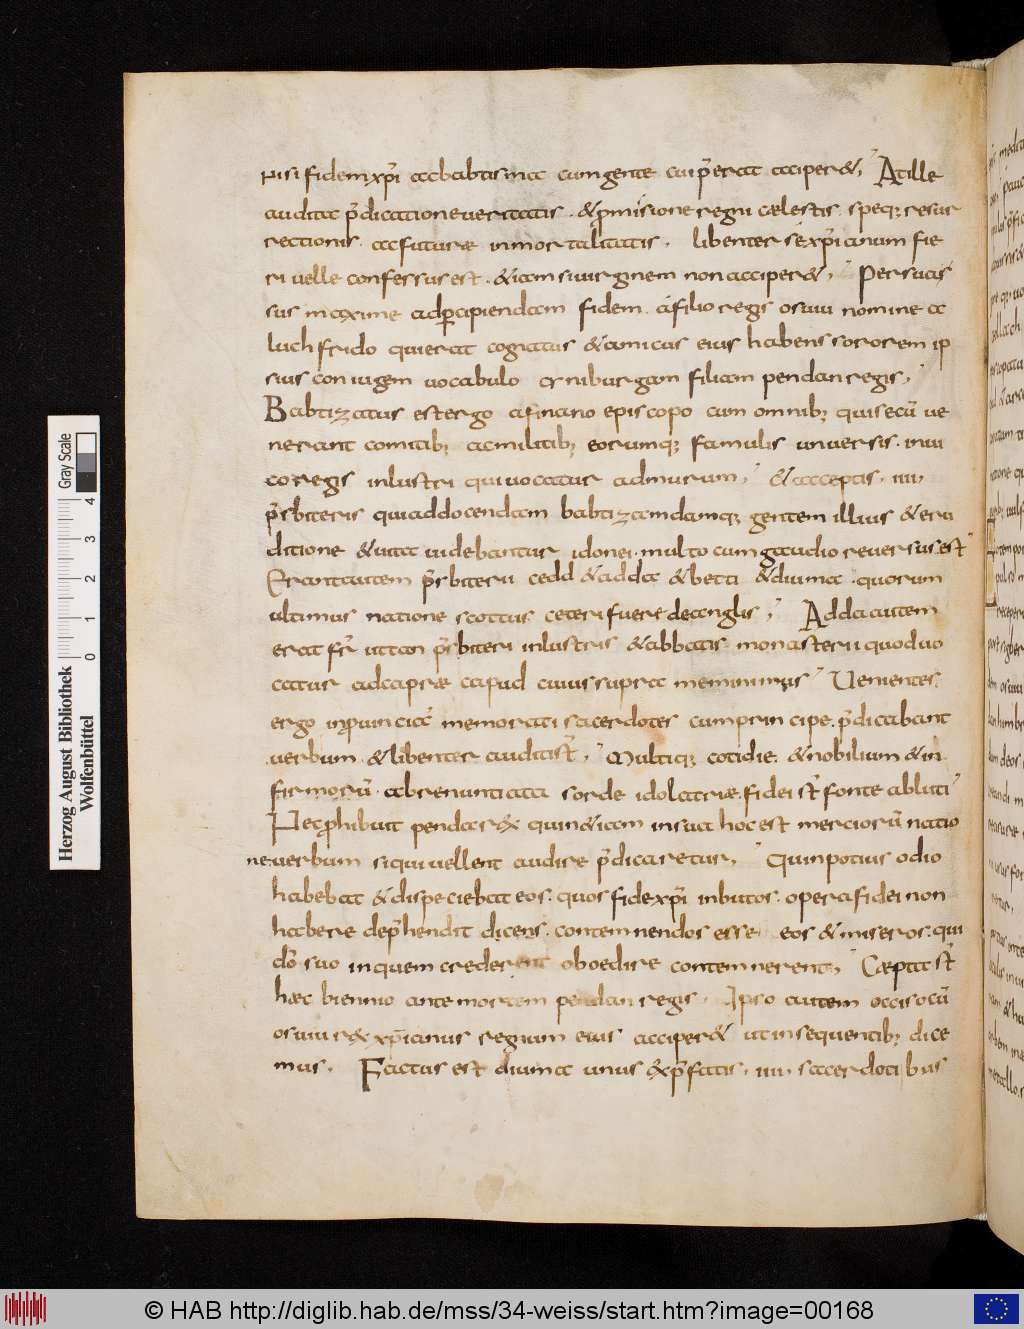 nisi fidem xp̄i ac babtisma cum gente cui p̄erat acciper&; At ille
audita p̄dicatione ueritatis · & p̄misione regni cælestis · speq; resur
rectionis · ac futuræ inmortalitatis · libenter se xp̄ianum fie
ri uelle confessus est · & iam si uirginem non acciper&; Persuas
sus maxime ad p̄cipiendam fidem · a filio regis osuiu nomine a
luchfrido qui erat cognatus & amicus eius habens sororem ip
sius coniugem uocabulo cyniburgam filiam pendan regis;
Babtizatus est ergo a finano episcopo cum omnib; qui secū ue
nerant comitib; ac militib; eorumq; famulis uniuersis · in ui
co regis inlustri qui uocatur admurum; & acceptis · iiii ·
p̄sbiteris qui ad docendam babtizamdamq; gentem illius & eru
ditione & uita uidebantur idonei · multo cum gaudio reuersus est
Erant autem p̄sbiteri cedd & adda & betti & diuma · quorum
ultimus natione scottus ceteri fuere de anglis; Adda autem
erat fr̄ uttan p̄sbiteri inlustris & abbatis monasterii quod uo
catur ad capræ caput cuius supra meminimus; Uenientes
ergo in p̄uinciā memorati sacerdotes cum principe · p̄dicabant
uerbum · & libenter auditi st̄; Multiq; cotidie · & nobilium & in
firmorū · abrenuntiata sorde idolatriæ · fidei st̄ fonte abluti
Nec p̄hibuit penda rex quin &iam in sua hoc est merciorū natio
ne · uerbum siqui uellent audire p̄dicaretur; Quin potius odio
habebat & dispeciebat eos · quos fide xp̄i inbutos · opera fidei non
habere dep̄hendit dicens · contemnendos esse eos & miseros · qui
dō suo in quem crederent oboedire contemnerent; Cæpta st̄
hæc biennio ante mortem pendan regis · Ipso autem occiso cū
osuiu rex xp̄ianus regnum eius acciper& ut in sequentib; dice
mus · Factus est diuma unus ex p̄fatis · iiii · sacerdotibus
Herzog August Bibliothek
Wolfenbüttel
0 1 2 3 4
Gray Scale
© HAB http://diglib.hab.de/mss/34-weiss/start.htm?image=00168